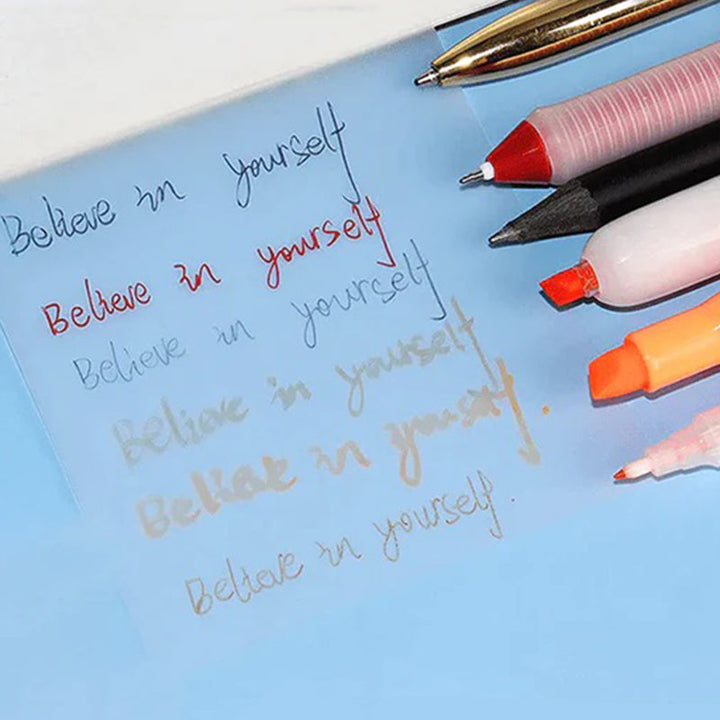 Believe in yourself
Believe in yourself
Believe in yourself
Believe in yourself
Believe in yourself.
Believe in yourself.